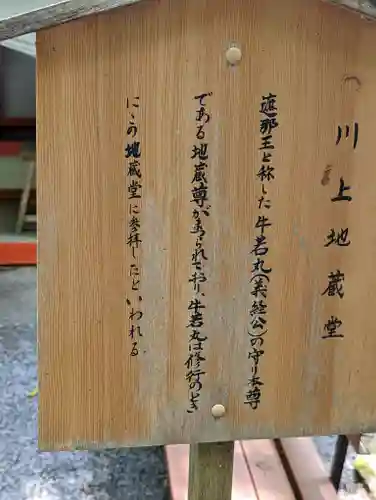 川上地蔵堂
遮那王と称した牛若丸(義経公)の守り本尊
である地蔵尊が祀られており、牛若丸は修行のとき
にこの地蔵堂に参拝したといわれる